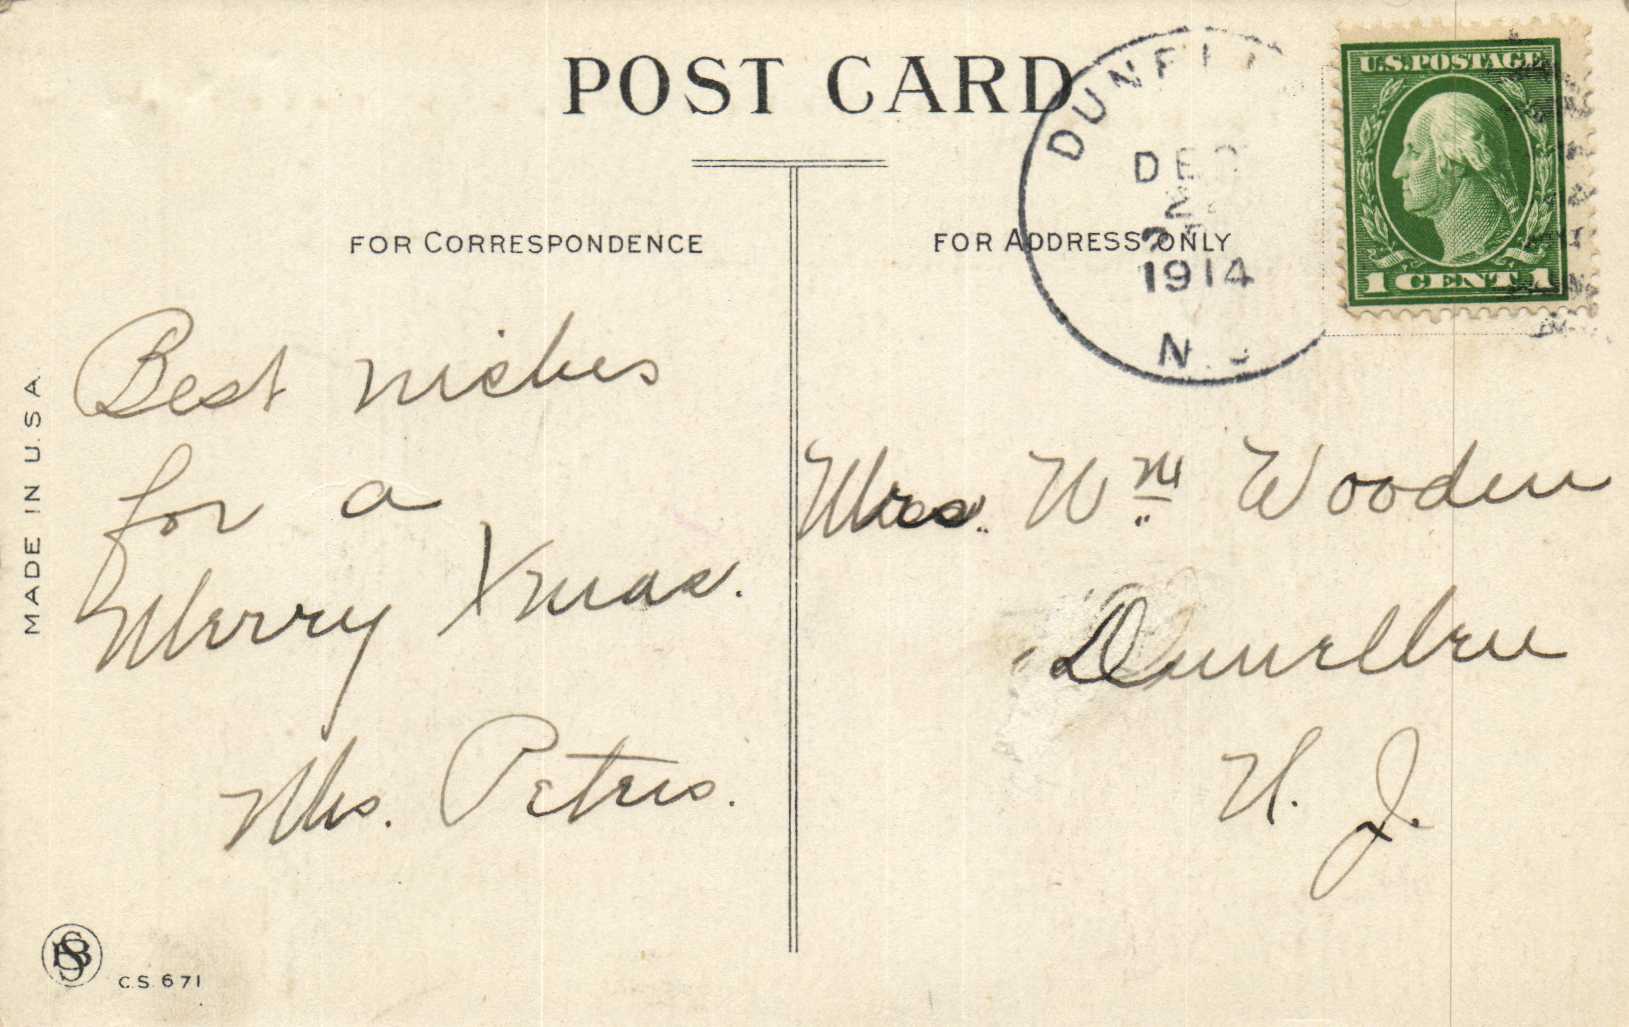 POST CARD
DUNEL
DEC
2
1914
N.J
U.S.POSTAGE
1 CENT 1
FOR CORRESPONDENCE
FOR ADDRESS ONLY
Best wishes
for a
Merry Xmas.
Mrs. Peters.
Mrs. Wm Wooden
Dunellen
N. J.
MADE IN U.S.A.
C.S. 671